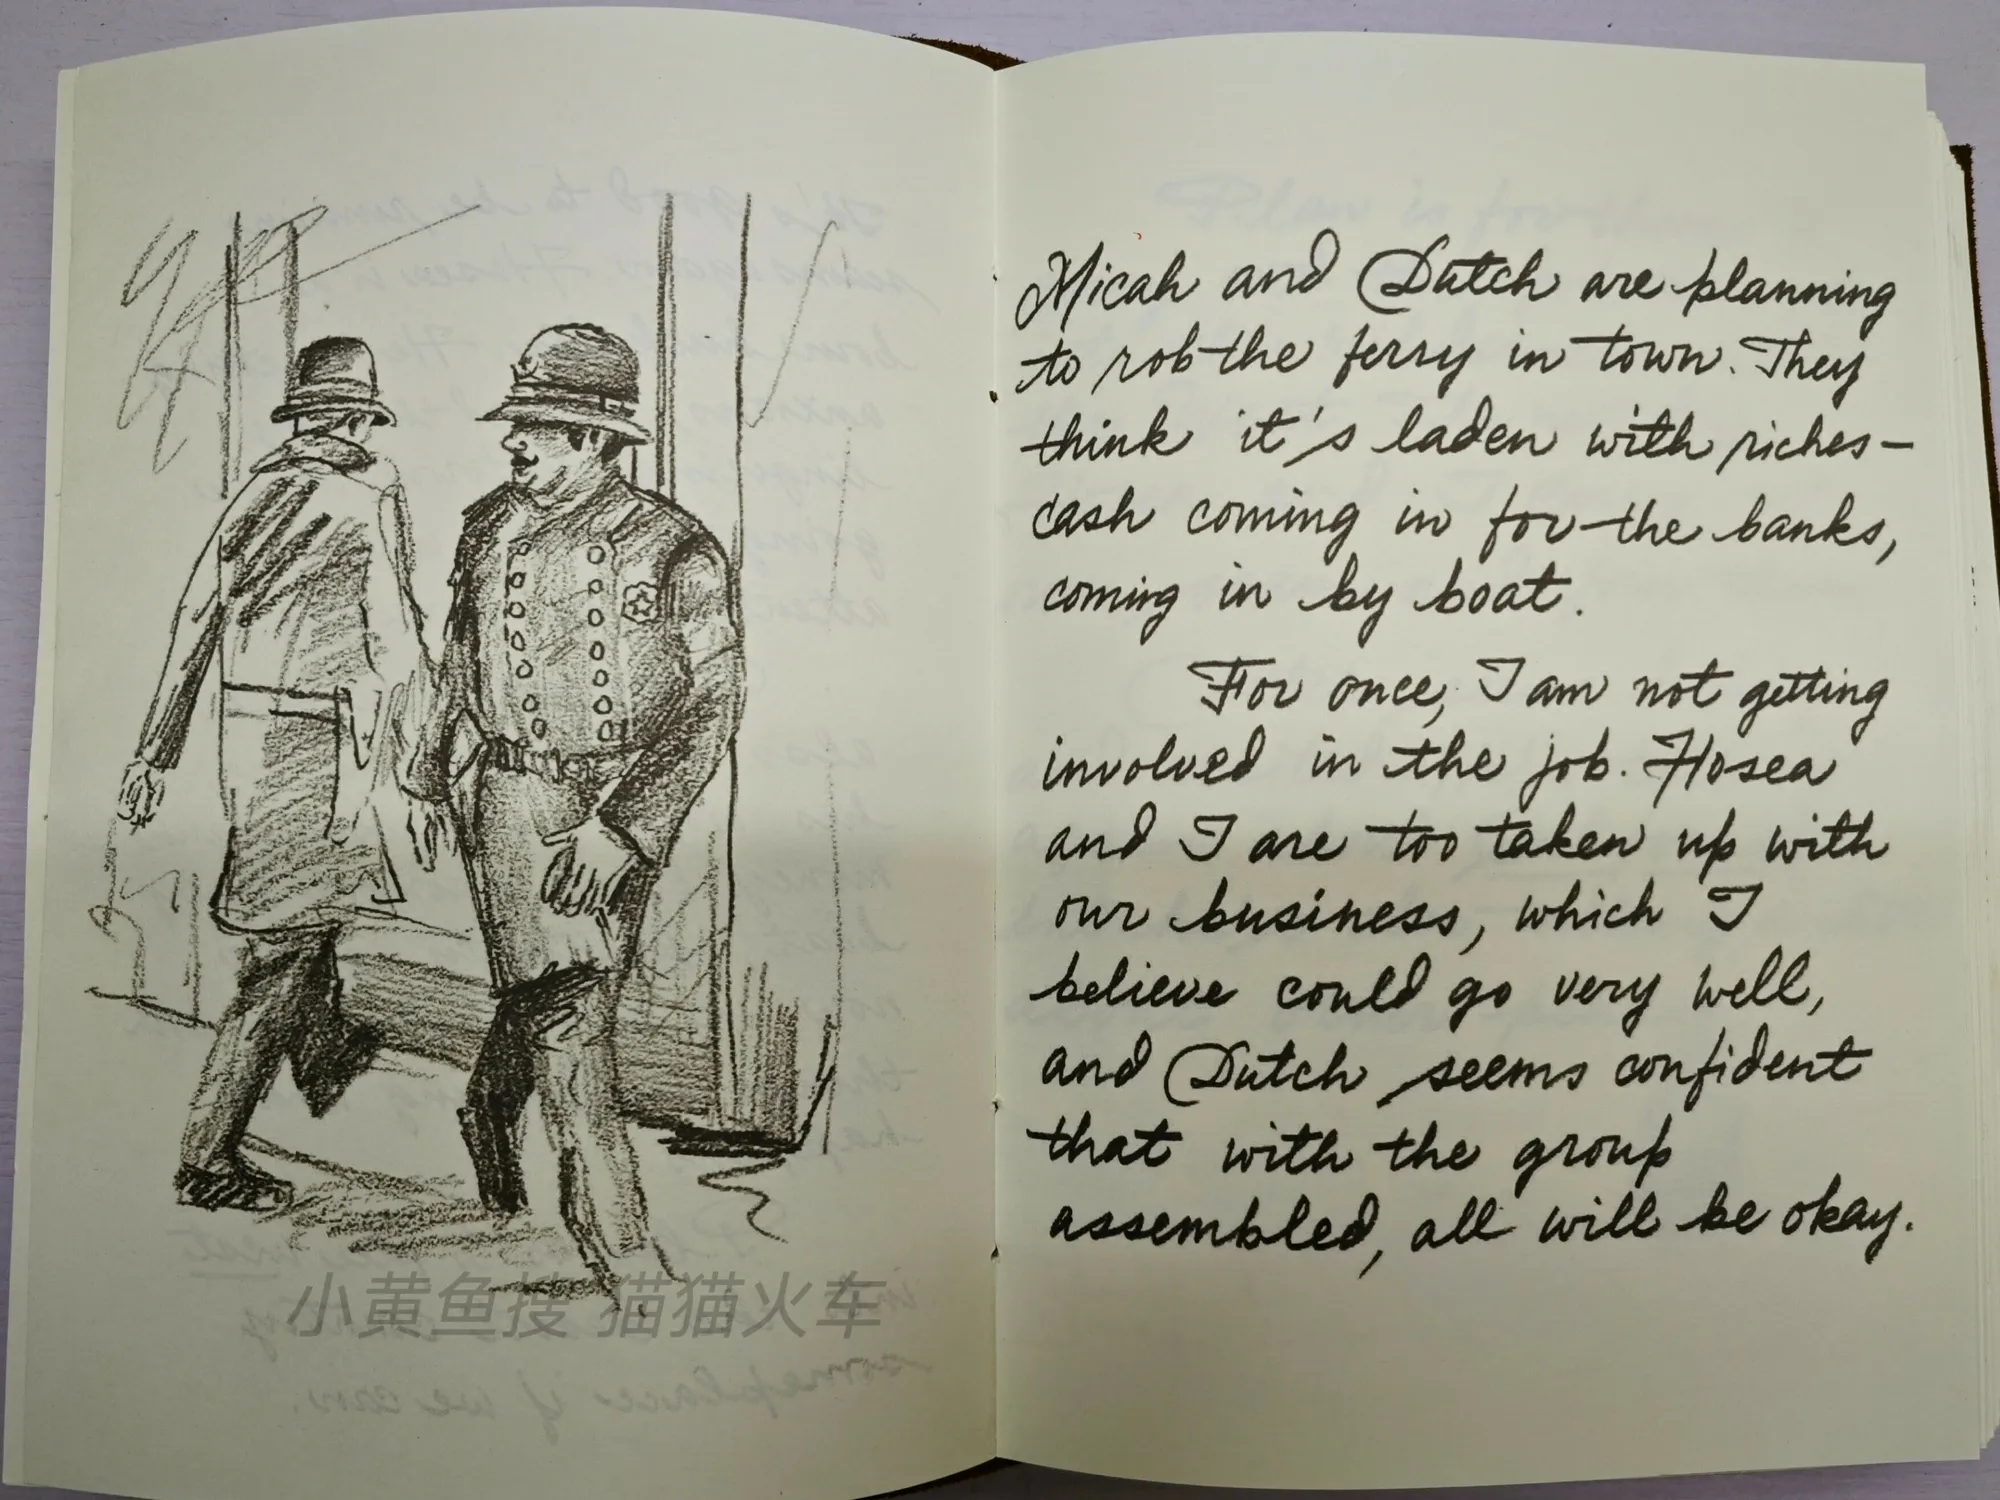 Micah and Dutch are planning
to rob the ferry in town. They
think it's laden with riches—
cash coming in for the banks,
coming in by boat.
For once, I am not getting
involved in the job. Hosea
and I are too taken up with
our business, which I
believe could go very well,
and Dutch seems confident
that with the group
assembled, all will be okay.
小黄鱼搜 猫猫火车